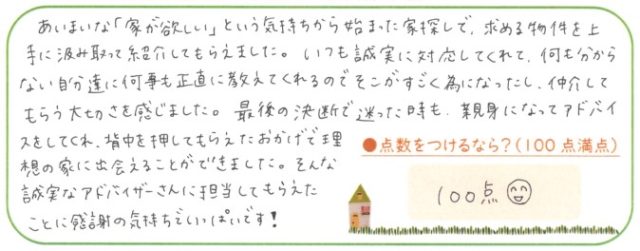 あいまいな「家が欲しい」という気持ちから始まった家探しで、求める物件を上
手に汲み取って紹介してもらえました。いつも誠実に対応してくれて、何も分から
ない自分達に何事も正直に教えてくれるのでそこがすごく為になったし、仲介して
もらう大切さを感じました。最後の決断で迷った時も、親身になってアドバイ
スをしてくれ、背中を押してもらえたおかげで理
想の家に出会えることができました。そんな
誠実なアドバイザーさんに担当してもらえた
ことに感謝の気持ちでいっぱいです!
●点数をつけるなら?(100点満点)
100点